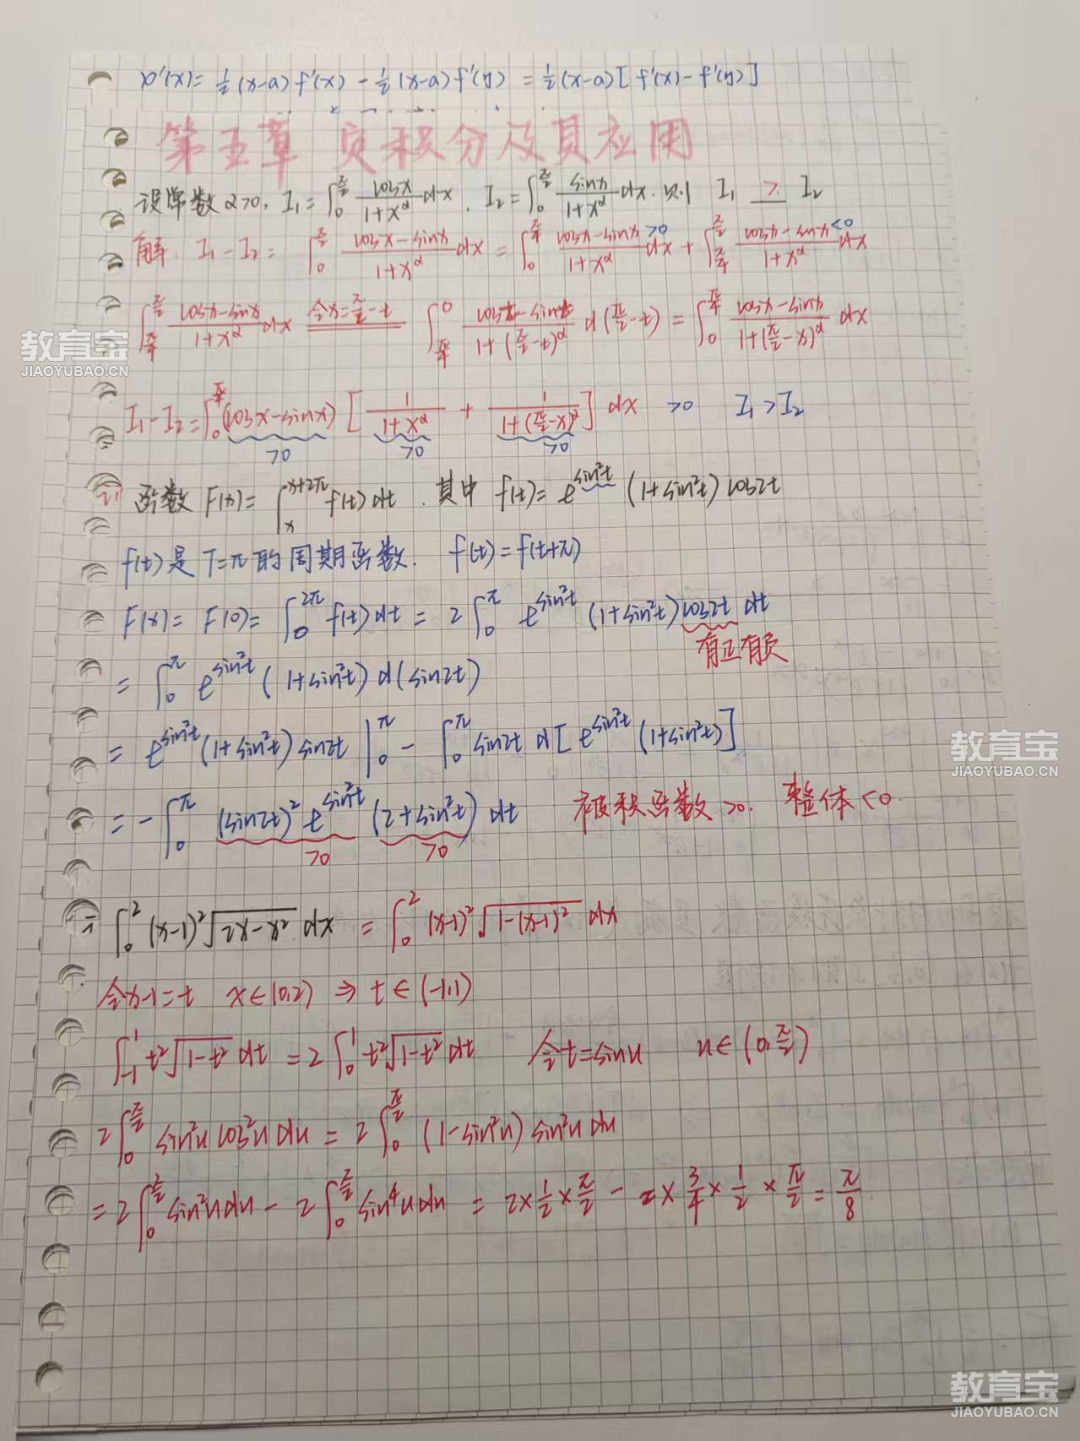 φ'(x)= 1/2 (x-a) f'(x) - 1/2 (x-a) f'(y) = 1/2 (x-a) [ f'(x) - f'(y) ]
第五章 定积分及其应用
设常数 α>0, I₁=∫₀^{π/2} cosx/(1+x^α) dx, I₂=∫₀^{π/2} sinx/(1+x^α) dx. 则 I₁ > I₂
解: I₁-I₂= ∫₀^{π/2} (cosx-sinx)/(1+x^α) dx = ∫₀^{π/4} (cosx-sinx)/(1+x^α) dx + ∫_{π/4}^{π/2} (cosx-sinx)/(1+x^α) dx
>0 <0
∫_{π/4}^{π/2} (cosx-sinx)/(1+x^α) dx 令x=π/2-t ∫_{π/4}^0 (cost-sint)/(1+(π/2-t)^α) d(π/2-t) = ∫₀^{π/4} (cosx-sinx)/(1+(π/2-x)^α) dx
教育宝
JIAOYUBAO.CN
I₁-I₂=∫₀^{π/4} (cosx-sinx) [ 1/(1+x^α) + 1/(1+(π/2-x)^α) ] dx >0 I₁>I₂
>0 >0 >0
函数 F(x)= ∫_x^{x+2π} f(t)dt. 其中 f(t)= e^{sin²t} (1+sin²t) cos2t
f(t)是 T=π的周期函数. f(t)=f(t+π)
F(x)= F(0)= ∫₀^{2π} f(t)dt = 2∫₀^π e^{sin²t} (1+sin²t) cos2t dt
有正有负
= ∫₀^π e^{sin²t} (1+sin²t) d(sin2t)
= e^{sin²t} (1+sin²t) sin2t |₀^π - ∫₀^π sin2t d[ e^{sin²t} (1+sin²t)]
教育宝
JIAOYUBAO.CN
= -∫₀^π (sin2t)² e^{sin²t} (2+sin²t) dt 被积函数>0. 整体<0.
>0 >0
∫₀² (x-1)²√(2x-x²) dx = ∫₀² (x-1)²√(1-(x-1)²) dx
令x-1=t x∈(0,2) ⇒ t∈(-1,1)
∫₋₁¹ t²√(1-t²) dt = 2∫₀¹ t²√(1-t²) dt 令t=sinu u∈(0,π/2)
2∫₀^{π/2} sin²u cos²u du = 2∫₀^{π/2} (1-sin²u) sin²u du
= 2∫₀^{π/2} sin²u du - 2∫₀^{π/2} sin⁴u du = 2×1/2×π/2 - 2×3/4×1/2×π/2 = π/8
教育宝
JIAOYUBAO.CN